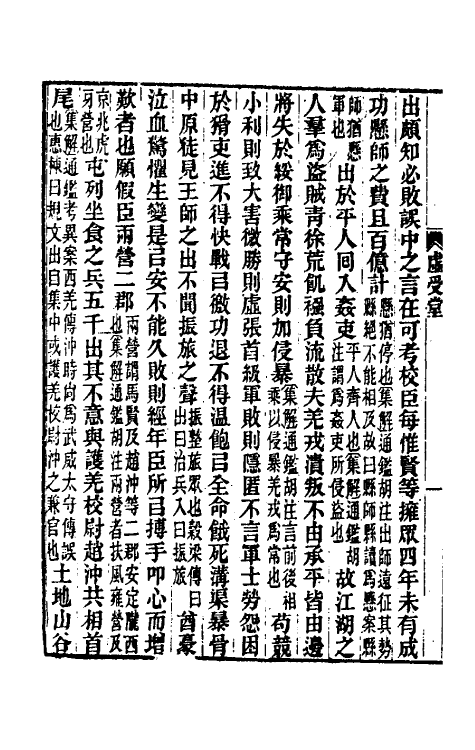 虛受堂
出頗知必敗誤中之言在可考校臣每惟賢等擁眾四年未有成
功懸師之費且百億計懸猶停也集解通鑑胡注出師遠征其勢縣絕不能相及故曰縣師縣讀爲懸案縣
師猶懸軍也出於平人回入姦吏平人齊人也集解通鑑胡注謂爲姦吏所侵盜也故江湖之
人羣爲盜賊青徐荒飢襁負流散夫羌戎潰叛不由承平皆由邊
將失於綏御乘常守安則加侵暴集解通鑑胡注言前後相乘以侵暴羌戎爲常也苟競
小利則致大害微勝則虛張首級軍敗則隱匿不言軍士勞怨困
於猾吏進不得快戰㠯徼功退不得溫飽㠯全命餓死溝渠暴骨
中原徒見王師之出不聞振旅之聲振整旅眾也穀梁傳曰出曰治兵入曰振旅酋豪
泣血驚懼生變是㠯安不能久敗則經年臣所㠯搏手叩心而增
歎者也願假臣兩營二郡兩營謂馬賢及趙沖等二郡安定隴西也集解通鑑胡注兩營者扶風雍營及
京兆虎牙營也屯列坐食之兵五千出其不意與護羌校尉趙沖共相首
尾集解通鑑考異案西羌傳沖時尚爲武威太守傳誤也惠棟曰規文出自集中或護羌校尉沖之兼官也土地山谷